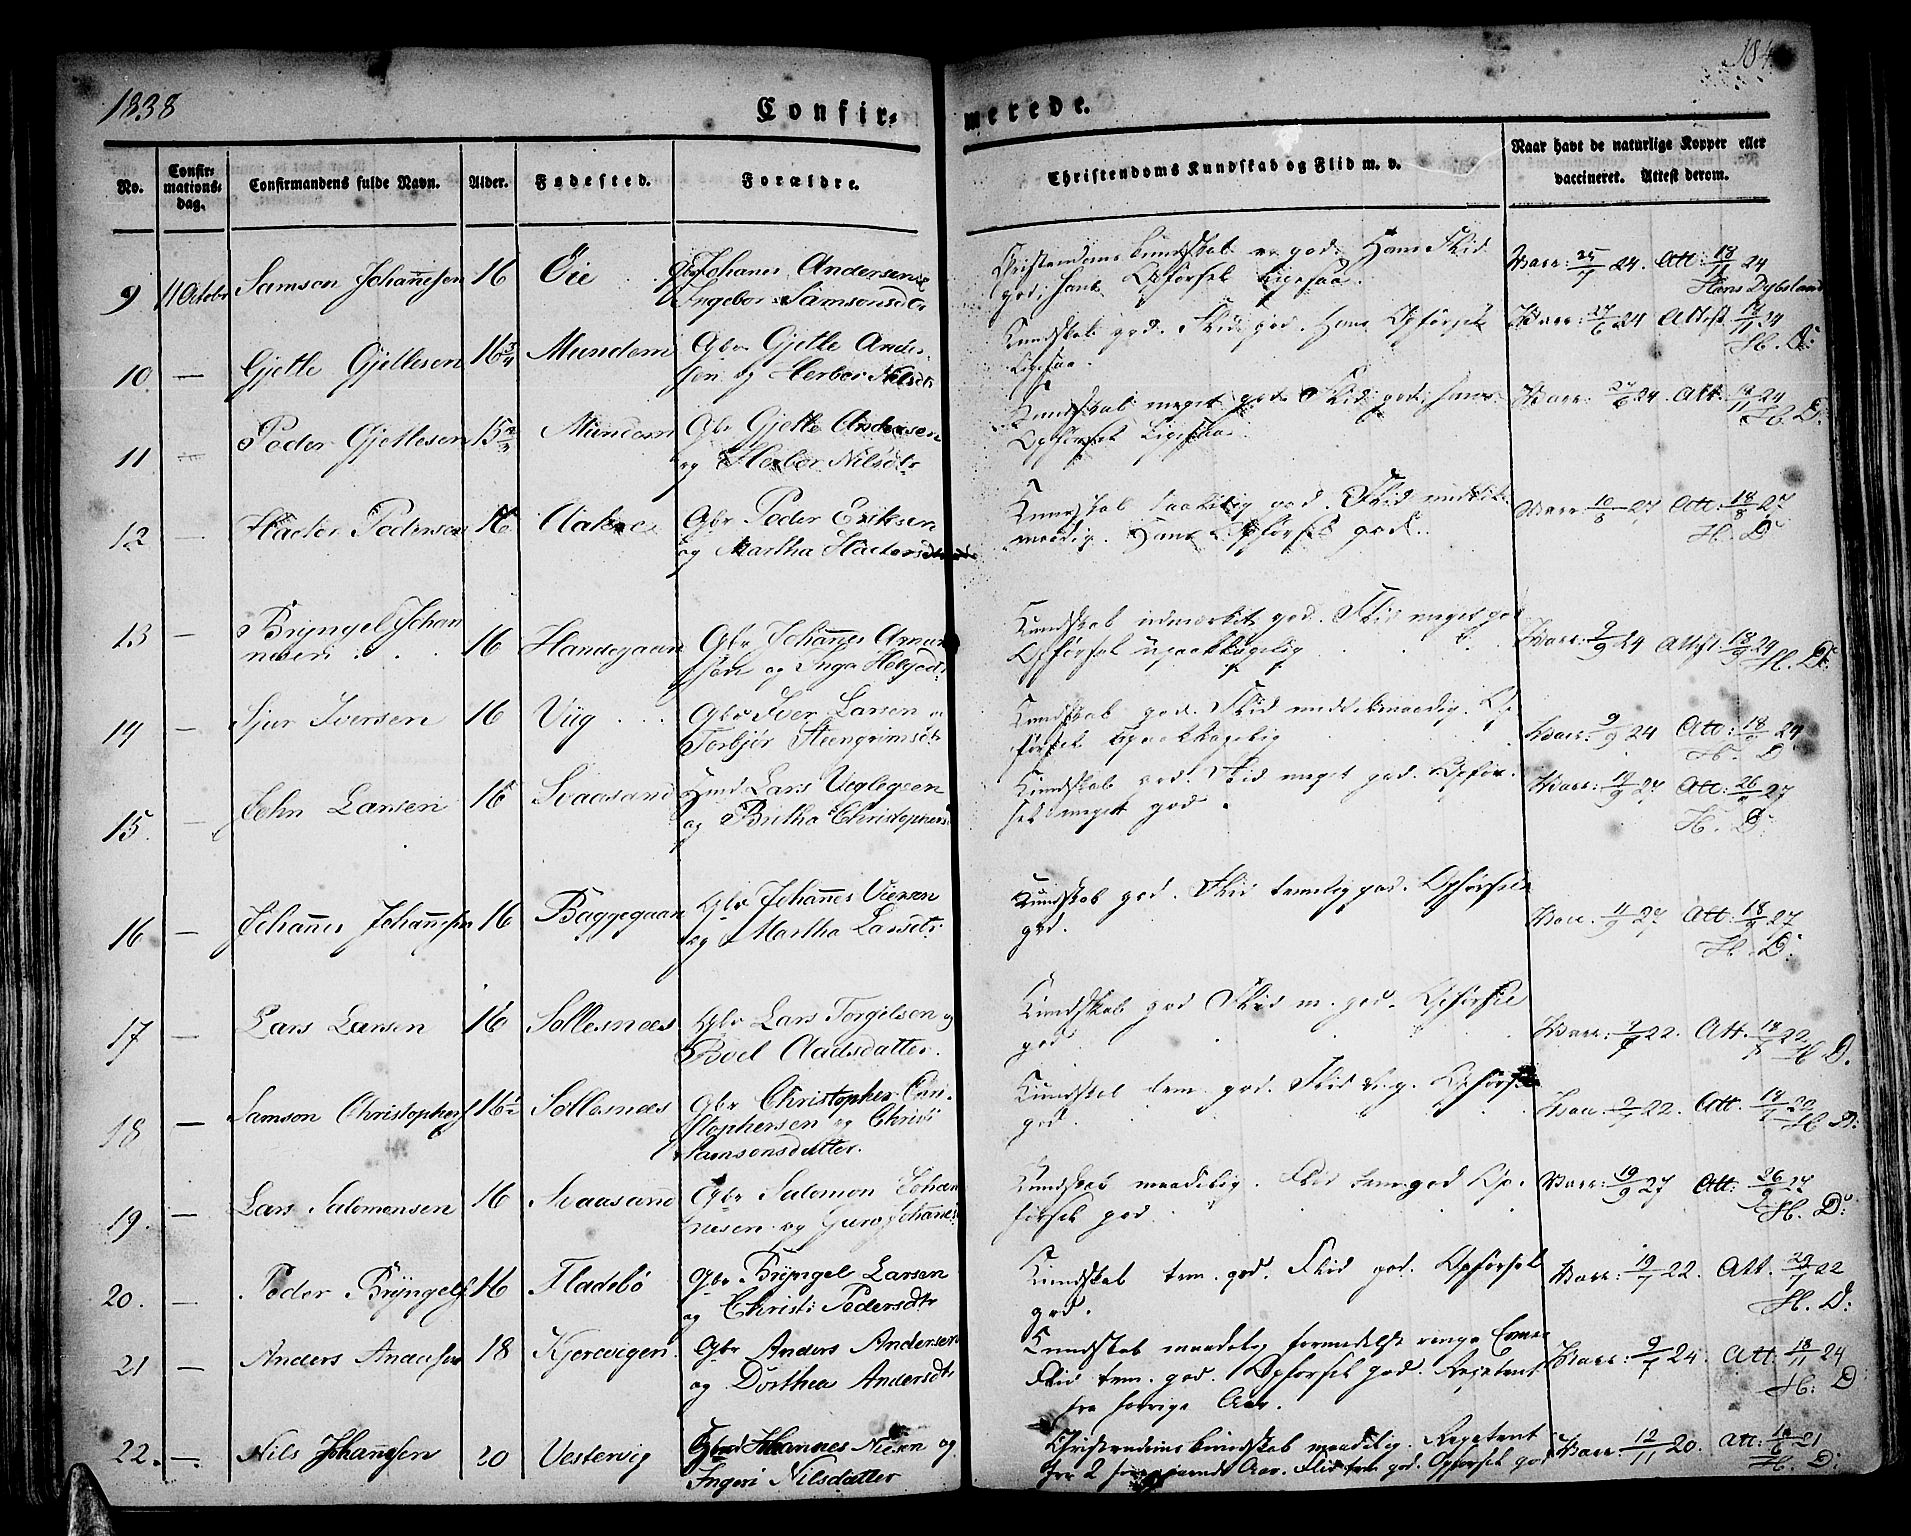 1838
184
Confir-
merede.
No.
Confir-
mations-
dag.
Confirmandens fulde Navn.
Alder.
Fødested.
Forældre.
Christendoms Kundskab og Flid m. v.
Naar havt de naturlige Kopper eller
vaccineret. Attest derom.
9 11 October Samson Johannesen 16 Öie Gbr Johanes Andersen &
Ingebor Samsonsdtr
Christendoms kundskab er god. Hans Flid
god; hans Opførsel ligesaa.
Vacc: 24. Att: 18/11 24
Hans Dybsland
10 — Gjetle Gjetlesen 16 3/4 Mundem Gbr Gjetle Ander-
sen og Herbor Nilsdtr
Kundskab god. Flid god. Hans Opførsel
ligesaa.
Vacc: 27/6 24 Attest 24
H. D:
11 — Peder Gjetlesen 15 Mundem Gbr Gjetle Andersen
og Herbor Nilsdtr
Kundskab meget god. Flid god; hans
Opførsel ligesaa.
Vacc: 27/6 24. Att. 24
H. D:
12 — Hactor Pedersen 16 Aakre Gbr Peder Eriksen
og Martha Hactorsdtr
Kundskab god. Flid middel-
maadig. Hans Opførsel god.
Vacc: 10/8 27 Att: 18/8 27
H. D:
13 — Bryngel Johan
nesen 16 Handegaard Gbr Johannes Amun
sen og Inga Helgedtr
Kundskab udmærket god. Flid meget god
Opførsel upaaklagelig
Vacc: 9/9 24 Attest. 18/9 24
H. D:
14 — Sjur Iversen 16 Viig Gbr Iver Larsen og
Torbjør Steengrimsdtr
Kundskab god. Flid middelmaadig. Op
førsel upaaklagelig
Vacc: 9/9 24 Att: 24
H. D
15. — John Larsen 16 Svaasand Hmd Lars Veglegeen
og Britha Christophersd
Kundskab god. Flid meget god. Opfør-
sel meget god.
Vacc: 19/9 27 Att: 27
H. D:
16 — Johannes Johannesen 16 Baggegaard Gbr Johannes Viersen
og Martha Larsdtr
Kundskab god. Flid temlig god. Opførsel
god.
Vacc. 11/9 27 Att: 18/9 27
H. D:
17 — Lars Larsen 16 Sollesnæs Gbr Lars Torgilsen og
Boel Aadsdatter.
Kundskab god Flid m. god. Opførsel
god
Vacc: 22. Att. 22
H. D.
18 — Samson Christophers 16 1/2 Sollesnæs Gbr Christopher Cri-
stophersen og Christi
Samsonsdatter.
Kundskab tem. god. Flid Opførsel
god.
Vacc 22. Att. 22
H D:
19. — Lars Salomonsen 16 Svaasand Gbr Salomon Johan
nesen og Guro Johanes
Kundskab maadelig. Flid tem god Op-
førsel god.
Vacc: 19/9 27 Att: 26/9 27
H. D:
20. — Peder Bryngels 16 Fladebö Gbr Bryngel Larsen
og Christi Pedersdtr
Kundskab tem. god. Flid god. Opførsel
god.
Vacc: 19/7 22. Att. 22
H. D:
21 — Anders Andersen 18 Kjerevigen Gbr Anders Andersen
og Dorthea Andersdtr
Kundskab maadelig formedelst ringe Evner
Flid tem. god. Opførsel god. Repetent
fra forrige Aar.
Vacc: 9/7 24. Att: 18/11 24
H: D
22. — Nils Johannesen 20 Vestervig Johannes Nisen og
Ingeri Nilsdatter
Christendoms kundskab maadelig. Repetent
fra 2 foregaaende Aar. Flid tem god. Opførsel god
Vacc: 12/11 20. Att: 21
H. D: